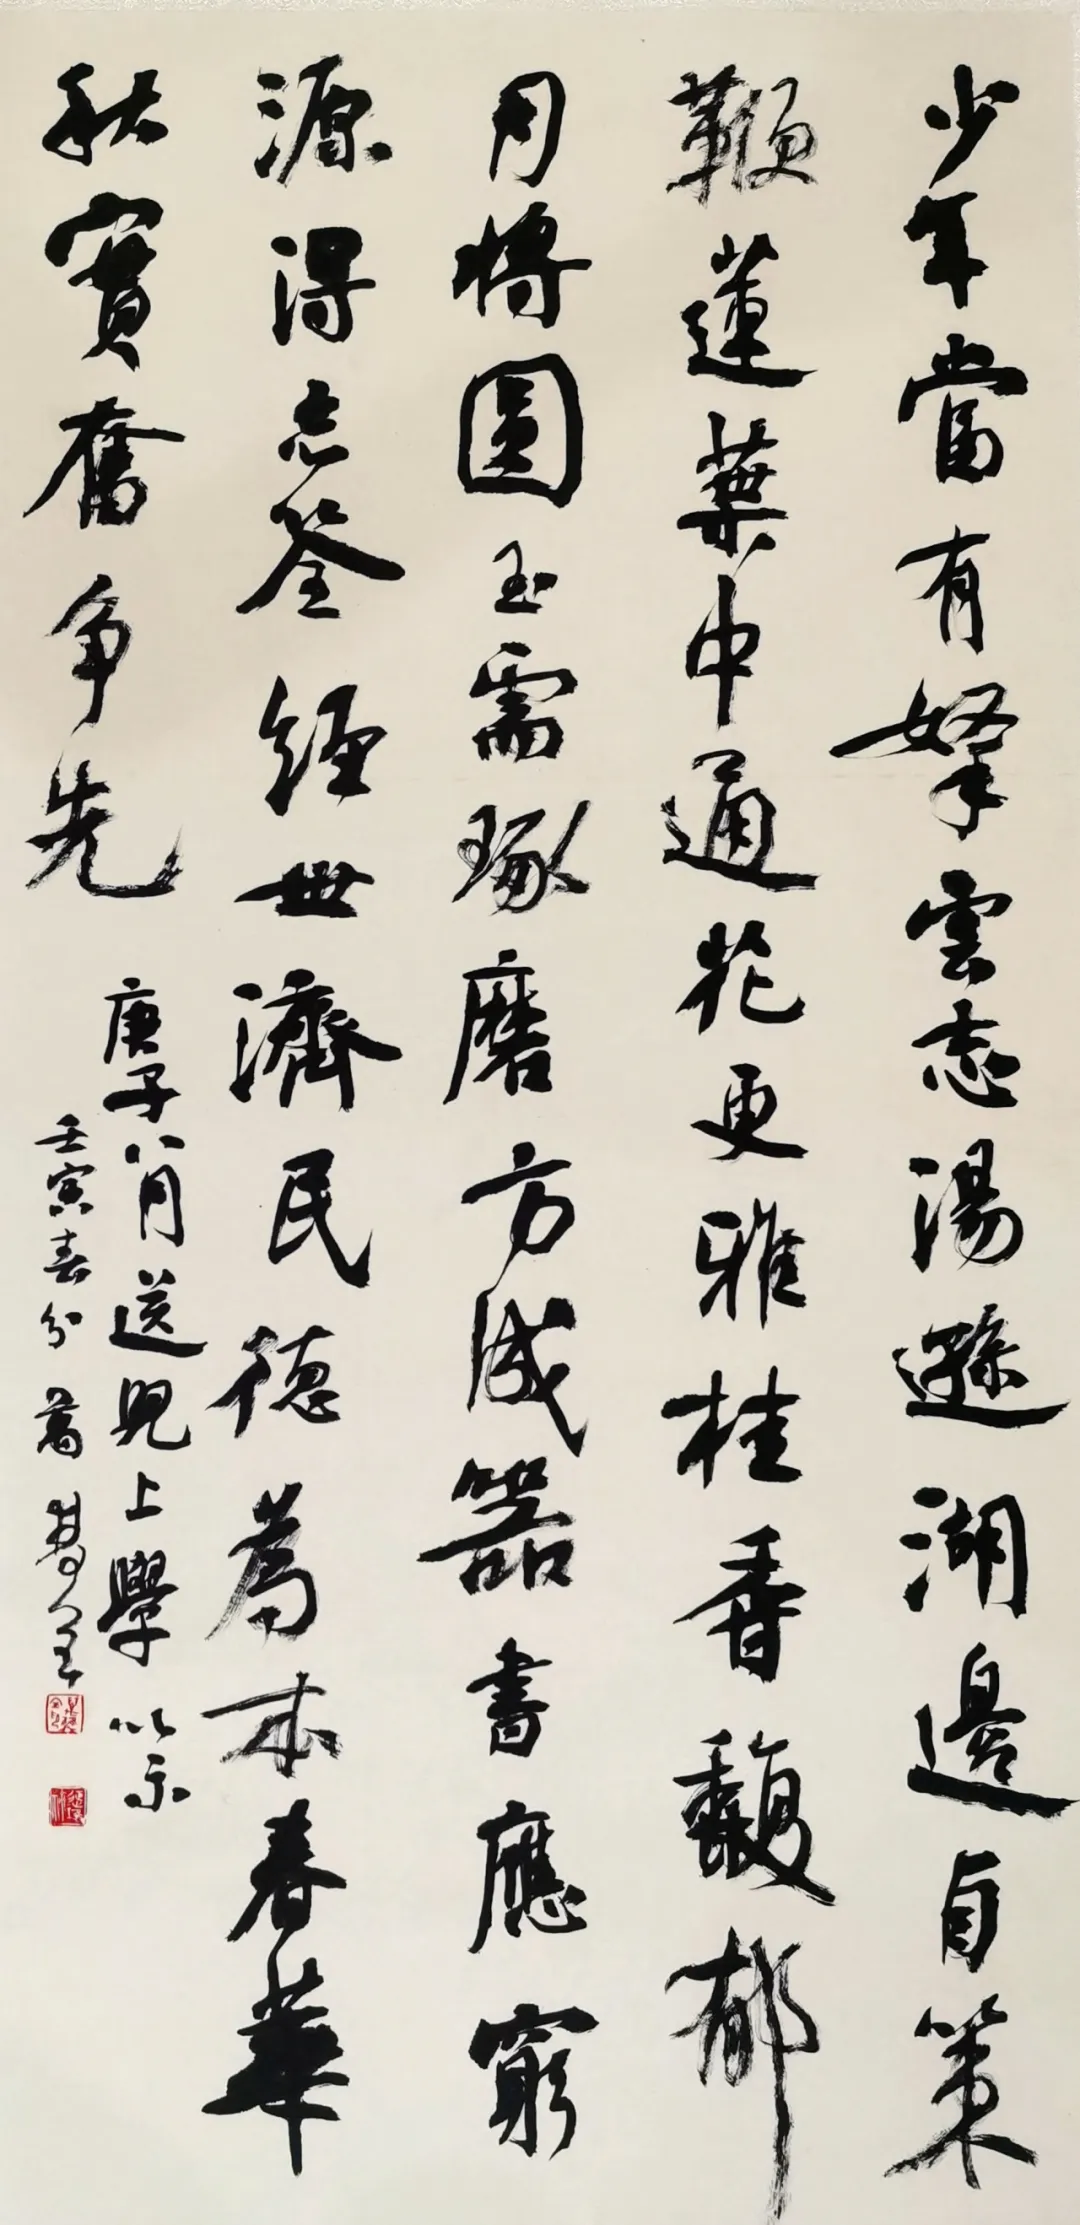 少年當有拏雲志湯遜湖邊自策
鞭蓮葉中通花更雅桂香馥郁
月將圓玉需琢磨方成器書應窮
源得忘筌經世濟民德為本春華
秋實奮争先
庚子八月送兒上學以示
壬寅春分 葛